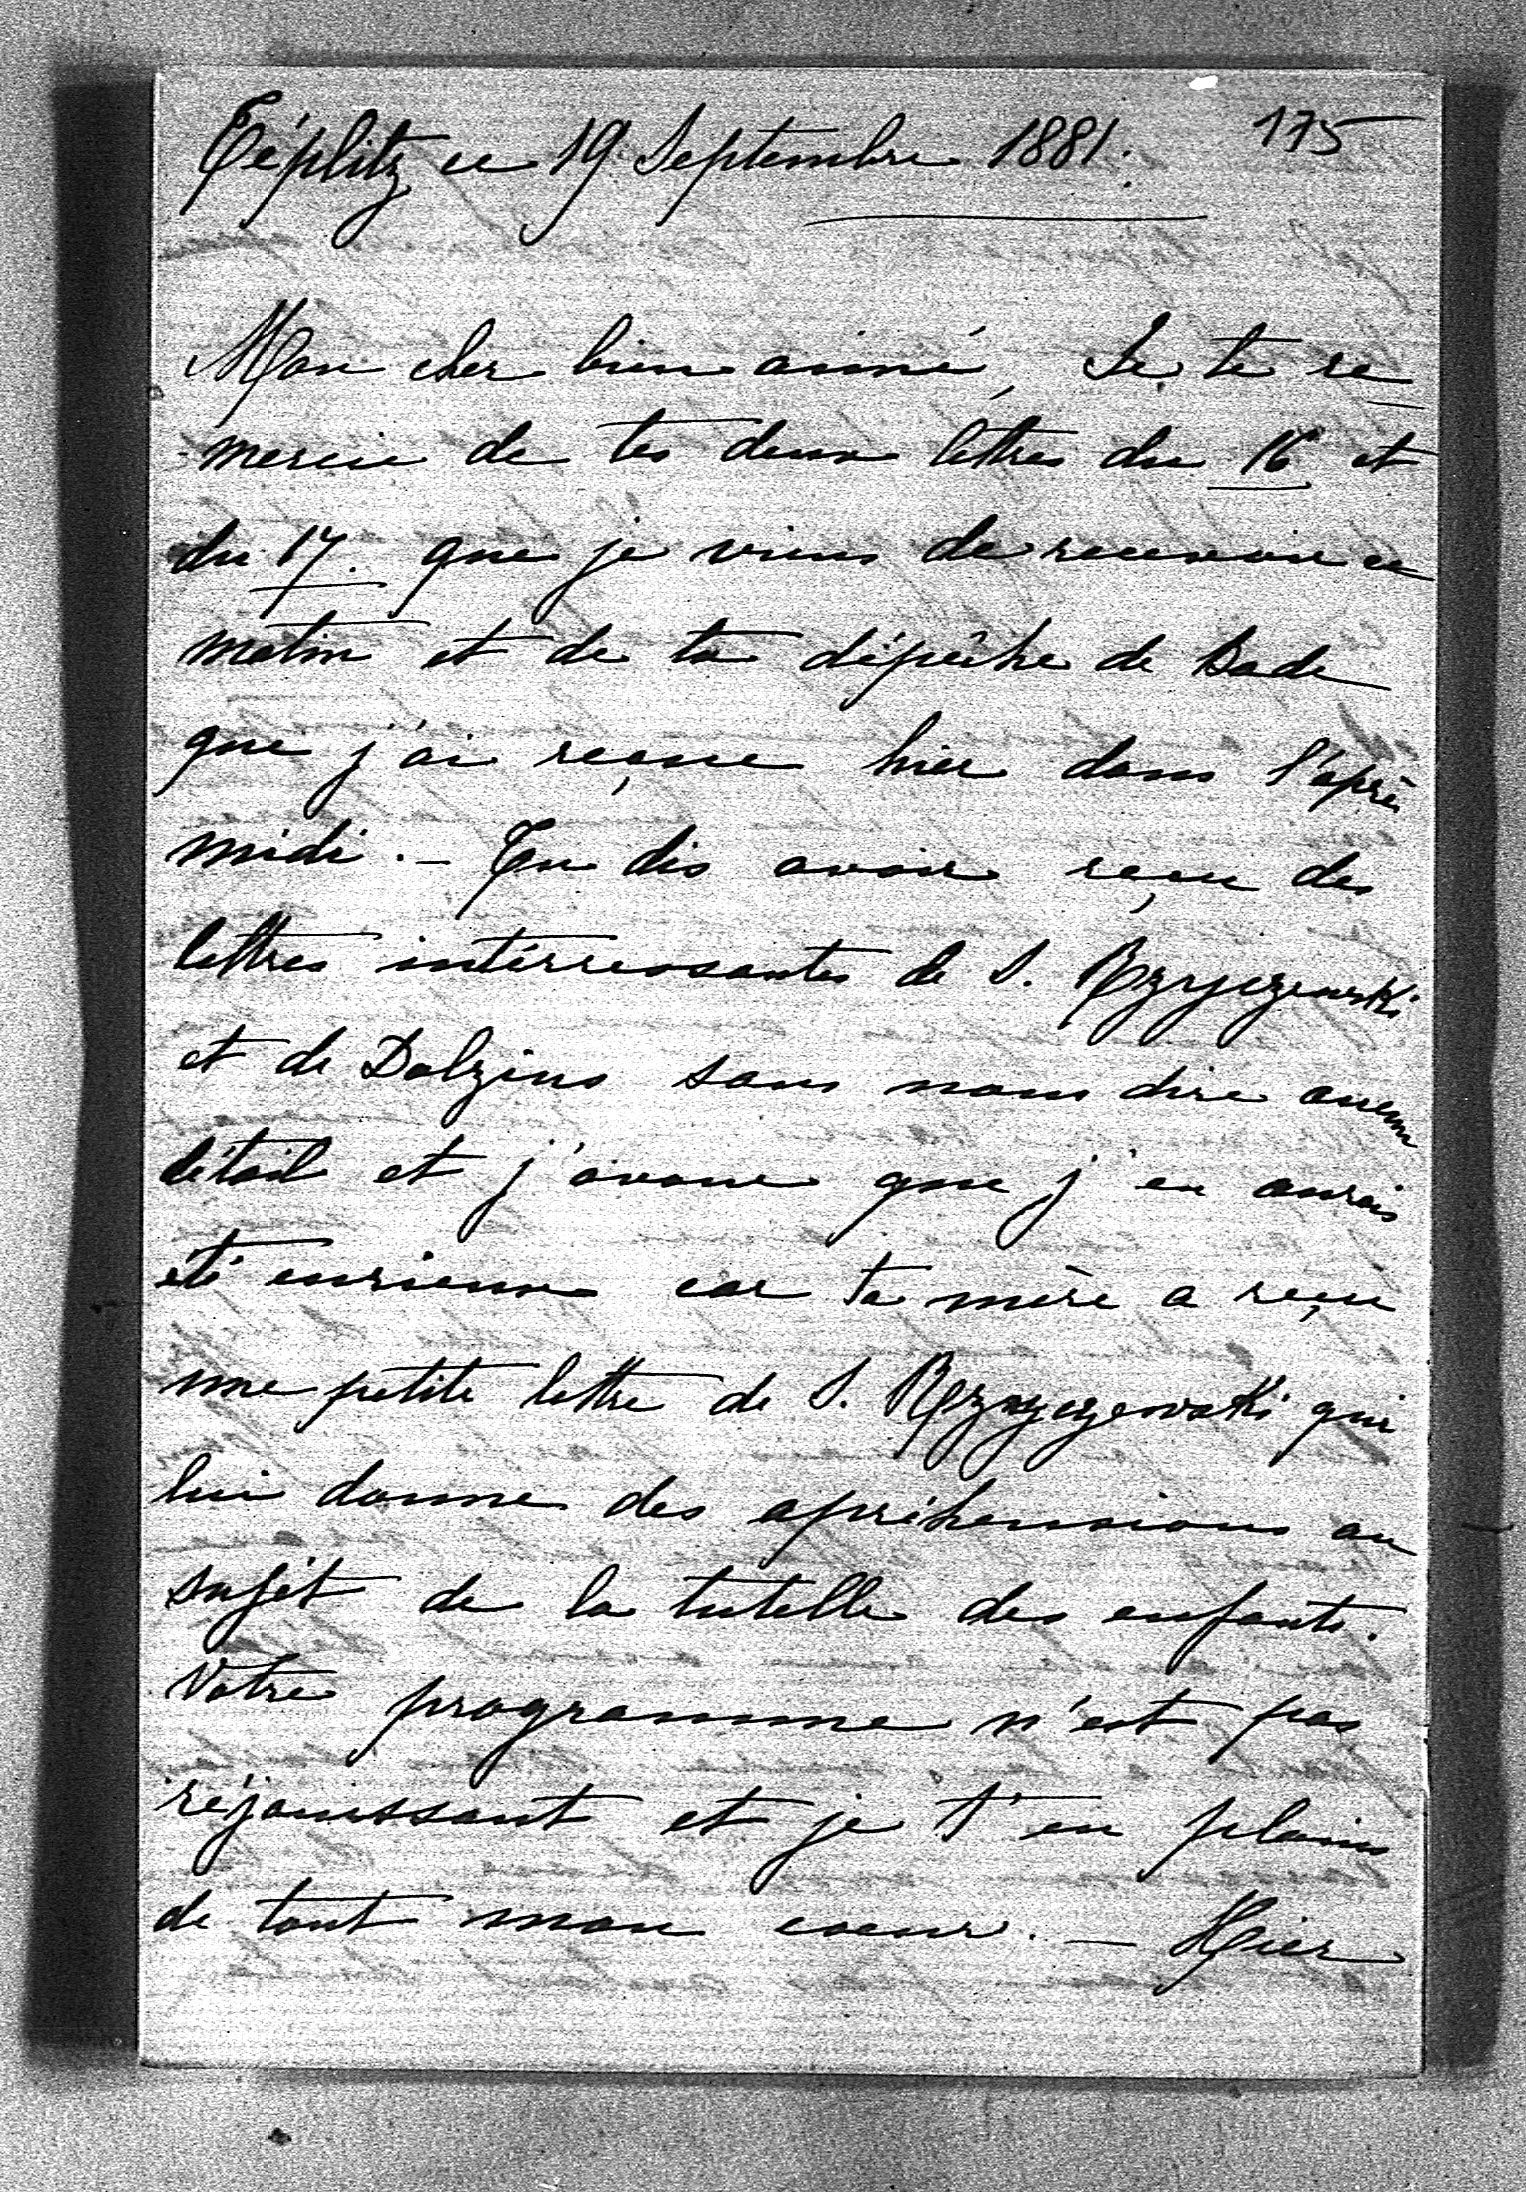 Téplitz ce 19 Septembre 1881. 175
Mon cher bien aimé, Je te re
mercie de tes deux lettres du 16 et
du 17. que je viens de recevoir ce
matin et de ta dépêche de Bade
que j'ai reçue hier dans l'après
midi. — Tu dis avoir reçu des
lettres intérressantes de S. Rzyczewski
et de Dolzius sans nous dire aucun
détail et j'avoue que j'en aurais
été curieuse car ta mère a reçu
une petite lettre de S. Rzyczewski qui
lui donne des apréhensions au
sujèt de la tutelle des enfants.
Votre programme n'est pas
réjouissant et je t'en plains
de tout mon coeur. — Hier